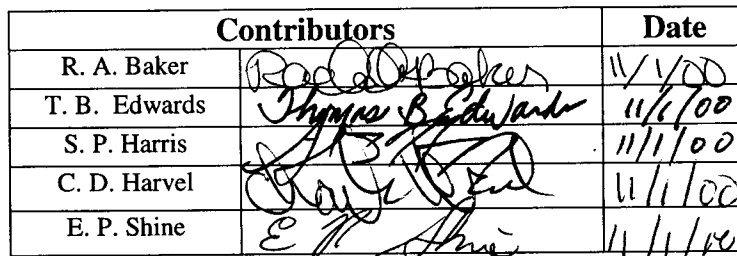 Contributors Date
R. A. Baker Baker 11/1/00
T. B. Edwards Thomas B Edwards 11/1/00
S. P. Harris 11/1/00
C. D. Harvel 11/1/00
E. P. Shine E P Shine 11/1/00